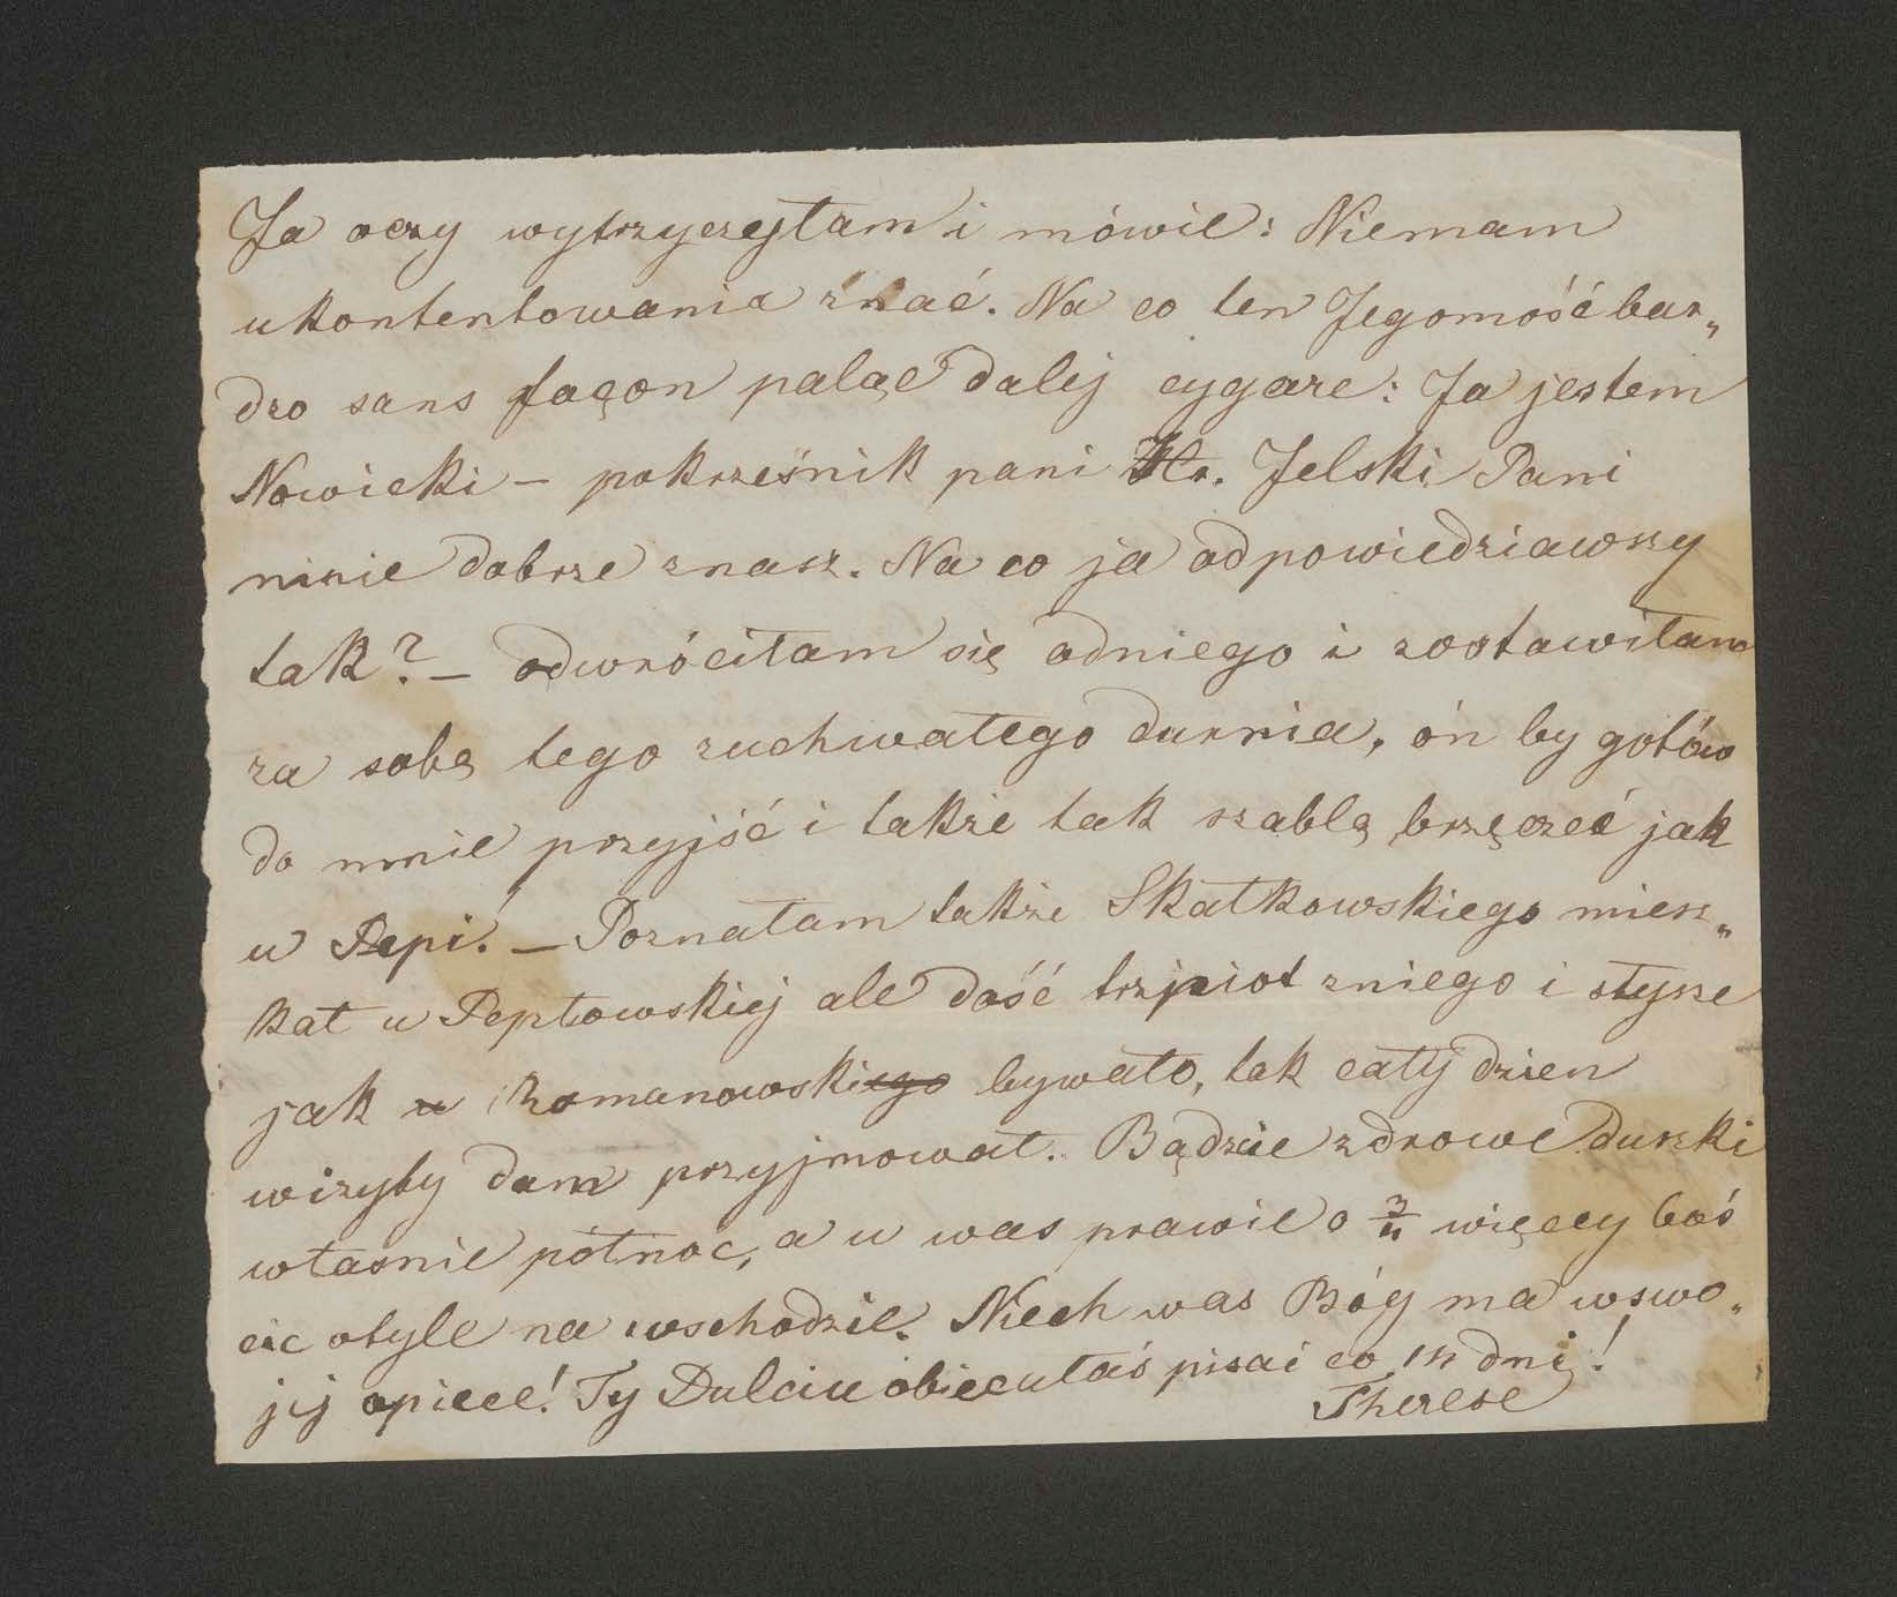 Ja oczy wytrzyczyłam i mówie: Niemam
ukontentowania znać. Na co ten Jegomość bar„
dzo sans façon paląc dalej cygare: Ja jestem
Nowicki – pokrześnik pani Hr. Jelski Pani
mnie dobrze znasz. Na co ja odpowiedziawszy
tak? – odwróciłam się odniego i zostawiłam
za sobą tego zuchwałego durnia, ón by gotów
do mnie przyjść i także tak szablą brzęczeć jak
u Pepi. – Poznałam także Skałkowskiego miesz„
kał u Pepłowskiej ale dość trzpiot zniego i słysze
jak u Romanowskiego bywało, tak cały dzien
wizyty dam przyjmował. Bądzcie zdrowe duszki
własnie północ, a u was prawie o 3/4 więcey boś
cie otyle na wschodzie. Niech was Bóg ma wswo„
jej opiece! Ty Dulciu obiecałaś pisać co 14 dni!
Therese